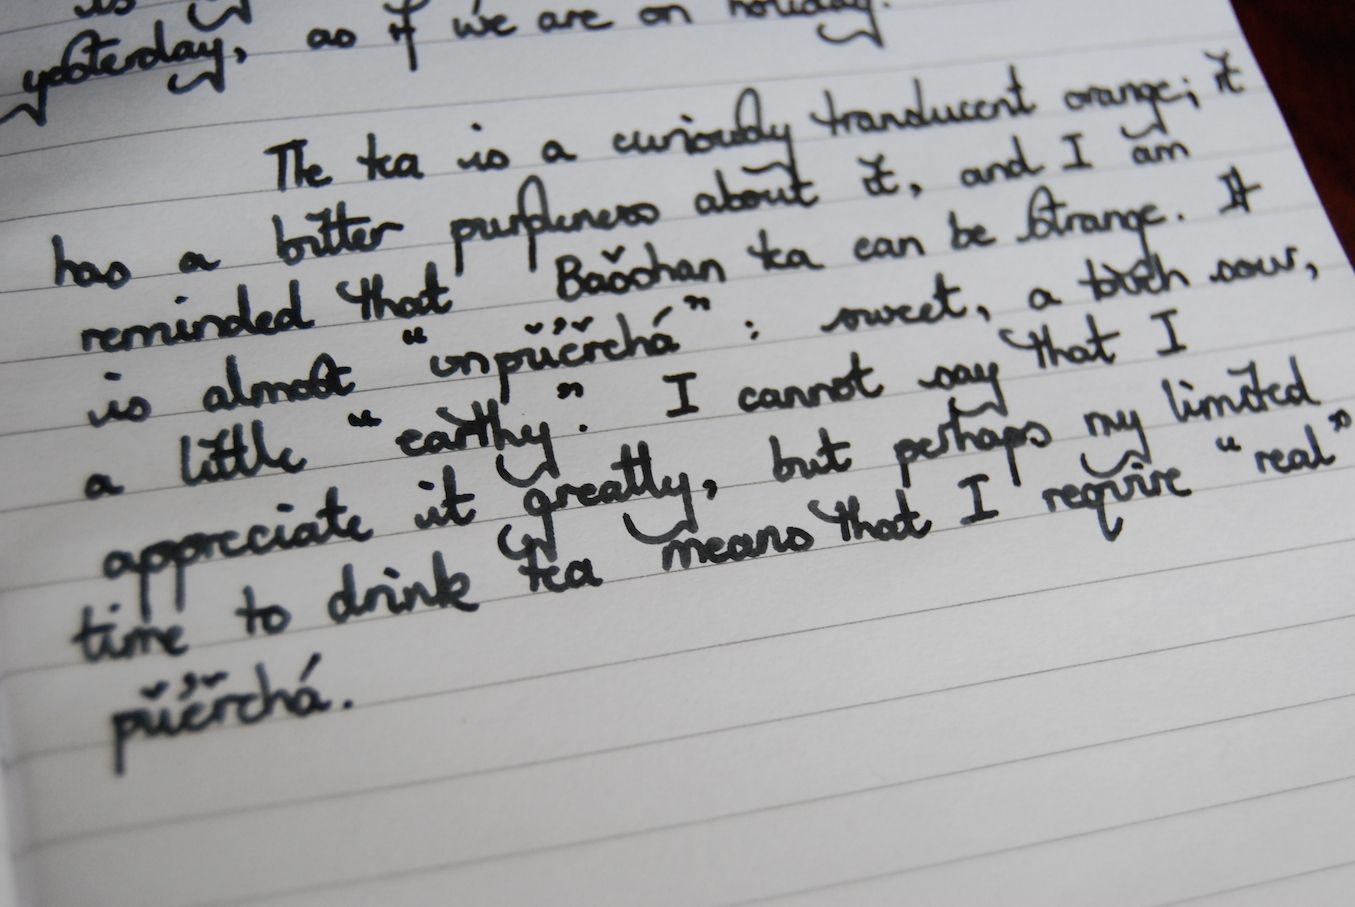 yesterday, as if we are on holiday.
The tea is a curiously translucent orange; it
has a bitter purpleness about it, and I am
reminded that Bǎoshan tea can be strange. It
is almost “unpǔ'ěrchá”: sweet, a touch sour,
a little “earthy”. I cannot say that I
appreciate it greatly, but perhaps my limited
time to drink tea means that I require “real”
pǔ'ěrchá.